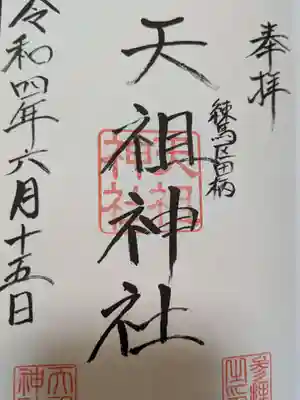 奉拝
練馬区田柄
天祖神社
令和四年六月十五日
天祖神社